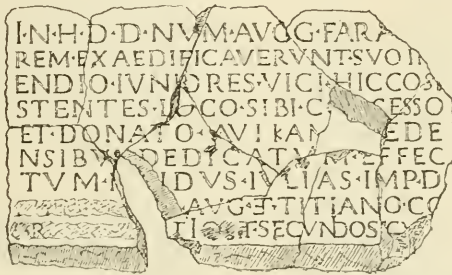 I·N·H·D·D·NVM·AVGG·FARA
REM·EXAEDIFICAVERVNT·SVO IN
ENDIO·IVNIORES·VICI HIC COS
STENTES·LOCO·SIBI·C SESSO
ET·DONATO·AVIKAN EDE
NSIBVS DEDICATVM·EFFEC
TVM· IDVS·IVLIAS·IMP·D
AVG·ET·TITIANO·CO
ET·SECVNDO